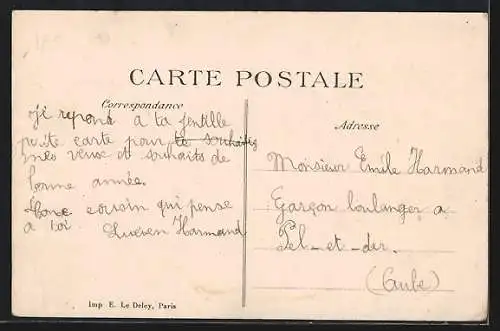 CARTE POSTALE
Correspondance
Adresse
je repond à ta jentille
petite carte pour te souhaites
mes veux et souhaits de
bonne année.
cousin qui pense
a toi Lucien Harmand
Monsieur Emile Harmand
Garçon boulanger a
Pel-et-der.
(Aube)
Imp E. Le Deley, Paris